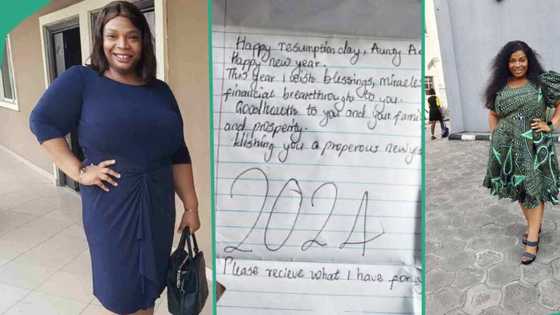 Happy resumption day, Aunty A
Happy new year.
This year I wish blessings, miracle
financial breakthrough to you.
Goodhealth to you and your fami
and prosperity.
Wishing you a properous newye
2024
Please recieve what I have for